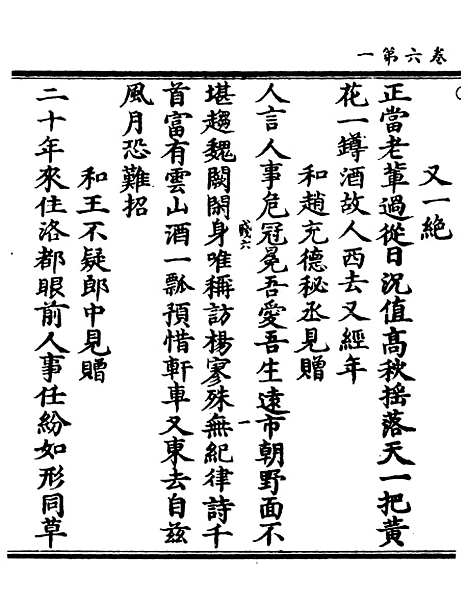 一第六卷
又一絶
正當老輩過從日況值高秋摇落天一把黃
花一罇酒故人西去又經年
和趙充德秘丞見贈
人言人事危冠冕吾愛吾生逺市朝野面不
堪趨魏闕閑身唯稱訪楊寥殊無紀律詩千
首富有雲山酒一瓢預惜軒車又東去自兹
風月恐難招
和王不疑郎中見贈
二十年來住洛都眼前人事任紛如形同草